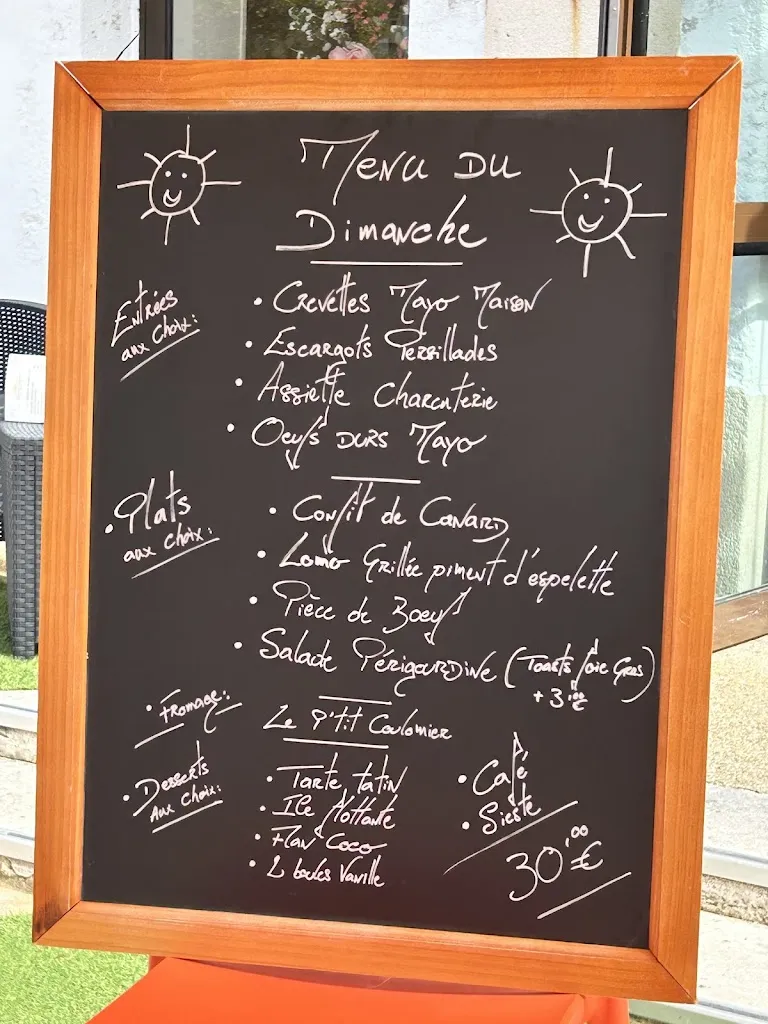 Menu du
Dimanche
Entrées
aux choix:
• Crevettes Mayo Maison
• Escargots Persillades
• Assiette Charcuterie
• Oeufs durs Mayo
• Plats
aux choix:
• Confit de Canard
• Lomo Grillée piment d'espelette
• Pièce de Boeuf
• Salade Périgourdine (Toasts foie Gras)
+3,00€
• Fromage:
Le P'tit Coulomier
• Desserts
Aux choix:
• Tarte tatin
• Ile flottante
• Flan Coco
• 2 boules Vanille
• Café
• Sieste
30,00€